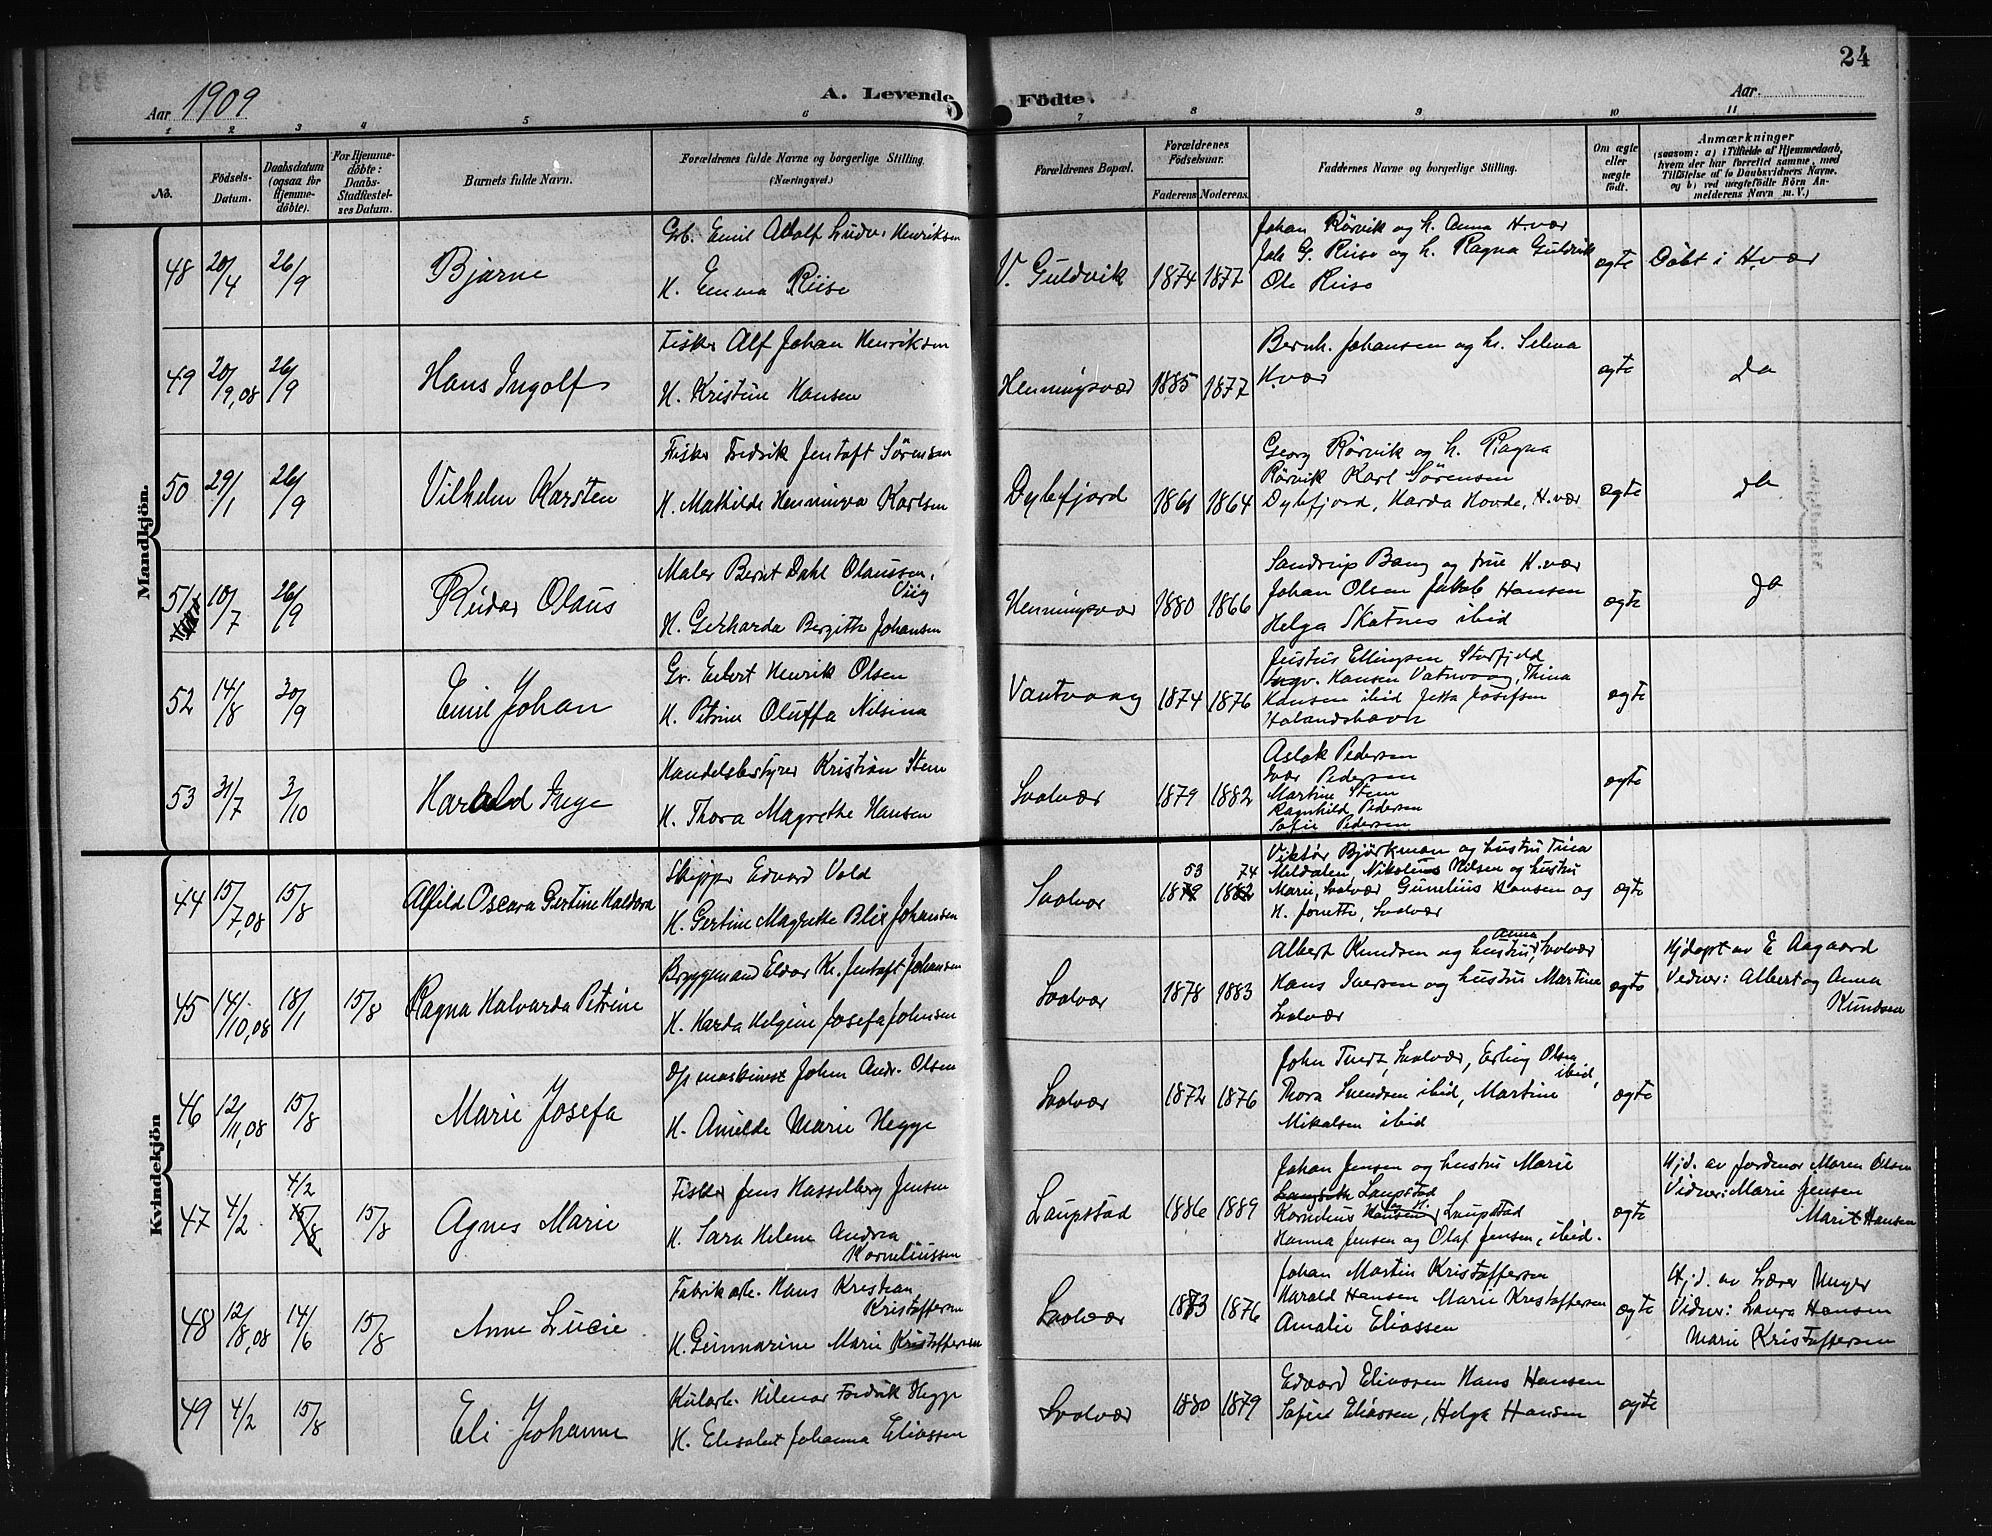 24
Aar 1909
A. Levende Födte.
Aar
1 2 3 4 5 6 7 8 9 10 11
No.
Födsels-Datum.
Daabsdatum (ogsaa for Hjemme-döbte).
For Hjemme-döbte: Daabs-Stadfæstel-ses Datum.
Barnets fulde Navn.
Forældrenes fulde Navne og borgerlige Stilling. (Næringsvei.)
Forældrenes Bopæl.
Forældrenes Födselsaar.
Faderens Moderens
Faddernes Navne og borgerlige Stilling.
Om ægte eller uægte födt.
Anmærkninger
(saasom: a) i Tilfælde af Hjemmedaab,
hvem der har forrettet samme, med
Tilföielse af to Daabsvidners Navne.
og b) ved uægtefödte Börn An-
melderens Navn m. V.)
Mandkjön.
48 20/4 26/9 Bjarne
Grb. Emil Adolf Ludv. Henriksen
H. Emma Riise
V. Guldvik 1874 1877
Johan Rörvik og h. Anna H.vær
Joh G. Riise og h. Ragna Guldvik
Ole Riise
ægte Döbt i H.vær
49 20/9,08 26/9 Hans Ingolf
Fisker Alf Johan Henriksen
H. Kristine Hansen
Henningsvær 1885 1877
Bernh. Johansen og h. Selma
H.vær
ægte Do
50 29/1 26/9 Vilhelm Karsten
Fisker Fredrik Jentoft Sörensen
H. Mathilde Henninva Karlsen
Dybfjord 1861 1864
Georg Rörvik og h. Ragna
Rörvik Karl Sörensen
Dybfjord, Harda Hovde, H.vær
ægte do
51 10/7 26/9 Reidar Olaus
Maler Bernt Dahl Olaussen
Viig
H. Gerharda Bergitte Johansen
Henningsvær 1880 1866
Sandrup Bang og frue H.vær
Johan Olsen Jakob Hansen
Helga Skatnes ibid
ægte do
52 14/8 30/9 Emil Johan
Gr. Eilert Henrik Olsen
H. Petrine Oluffa Nilsina
Vatnvaag 1874 1876
Justus Ellingsen Storfjeld
Ingv. Hansen Vatnvaag, Thina
Hansen ibid Jetta Josefsen
Holandshavn
ægte
53 31/7 3/10 Harald Inge
Handelsbestyrer Kristian Steen
H. Thora Magrethe Hansen
Svolvær 1879 1882
Aslak Pedersen
Ivar Pedersen
Martine Steen
Ragnhild Pedersen
Sofie Pedersen
ægte
Kvindekjön
44 15/7,08 15/8 Alfild Oscara Gertine Haldora
Skipper Edvard Vold
H. Gertine Magrethe Blix Johansen
Svolvær 53 1879 74 1882
Viktor Björkman og hustru Tina
Meldalen, Nikolaus Nilsen og hustru
Marie, Svolvær Gunelius Hansen og
H. Jonette, Svolvær
ægte
45 14/10,08 18/1 15/8 Ragna Halvarda Petrine
Bryggemand Eldor Kr. Jentoft Johansen
H. Harda Helgine Josefa Johnsen
Svolvær 1878 1883
Albert Knudsen og hustru Anna Svolvær
Hans Iversen og hustru Martine
Svolvær
ægte
Hjdöpt av E Aagaard
Vidner: Albert og Anna
Knudsen
46 12/11,08 15/8 Marie Josefa
D/s maskinist Johan Andr. Olsen
H. Amilde Marie Hegge
Svolvær 1872 1876
John Tuerz, Svolvær, Erling Olsen
ibid,
Thora Svendsen ibid, Martine
Mikalsen ibid
ægte
47 4/2 4/2 15/8 15/8 Agnes Marie
Fisker Jens Hasselberg Jensen
H. Sara Helene Andrea
Korneliussen
Laupstad 1886 1889
Johan Jensen og hustru Marie
Laupstad
Kornelius Hansen og H. Laupstad
Hanna Jensen og Olaf Jensen, ibid.
ægte
Hjd. av jordmor Maren Olsen
Vidner: Marie Jensen
Marit Hansen
48 12/8,08 14/6 15/8 Anne Lucie
Fabrikarb. Hans Kristian
Kristoffersen
H. Geinmarine Marie Kristoffersen
Svolvær 1873 1876
Johan Martin Kristoffersen
Harald Hansen Marie Kristoffersen
Amalie Eliassen
ægte
Hjd. av Lærer Unger
Vidner: Laura Hansen
Marie Kristoffersen
49 4/2 15/8 Eli Johanne
Kularb. Hilmar Fredrik Hegge
H. Elisabet Johanna Eliassen
Svolvær 1880 1879
Edvard Eliassen Hans Hansen
Sofie Eliassen, Helga Hansen
ægte